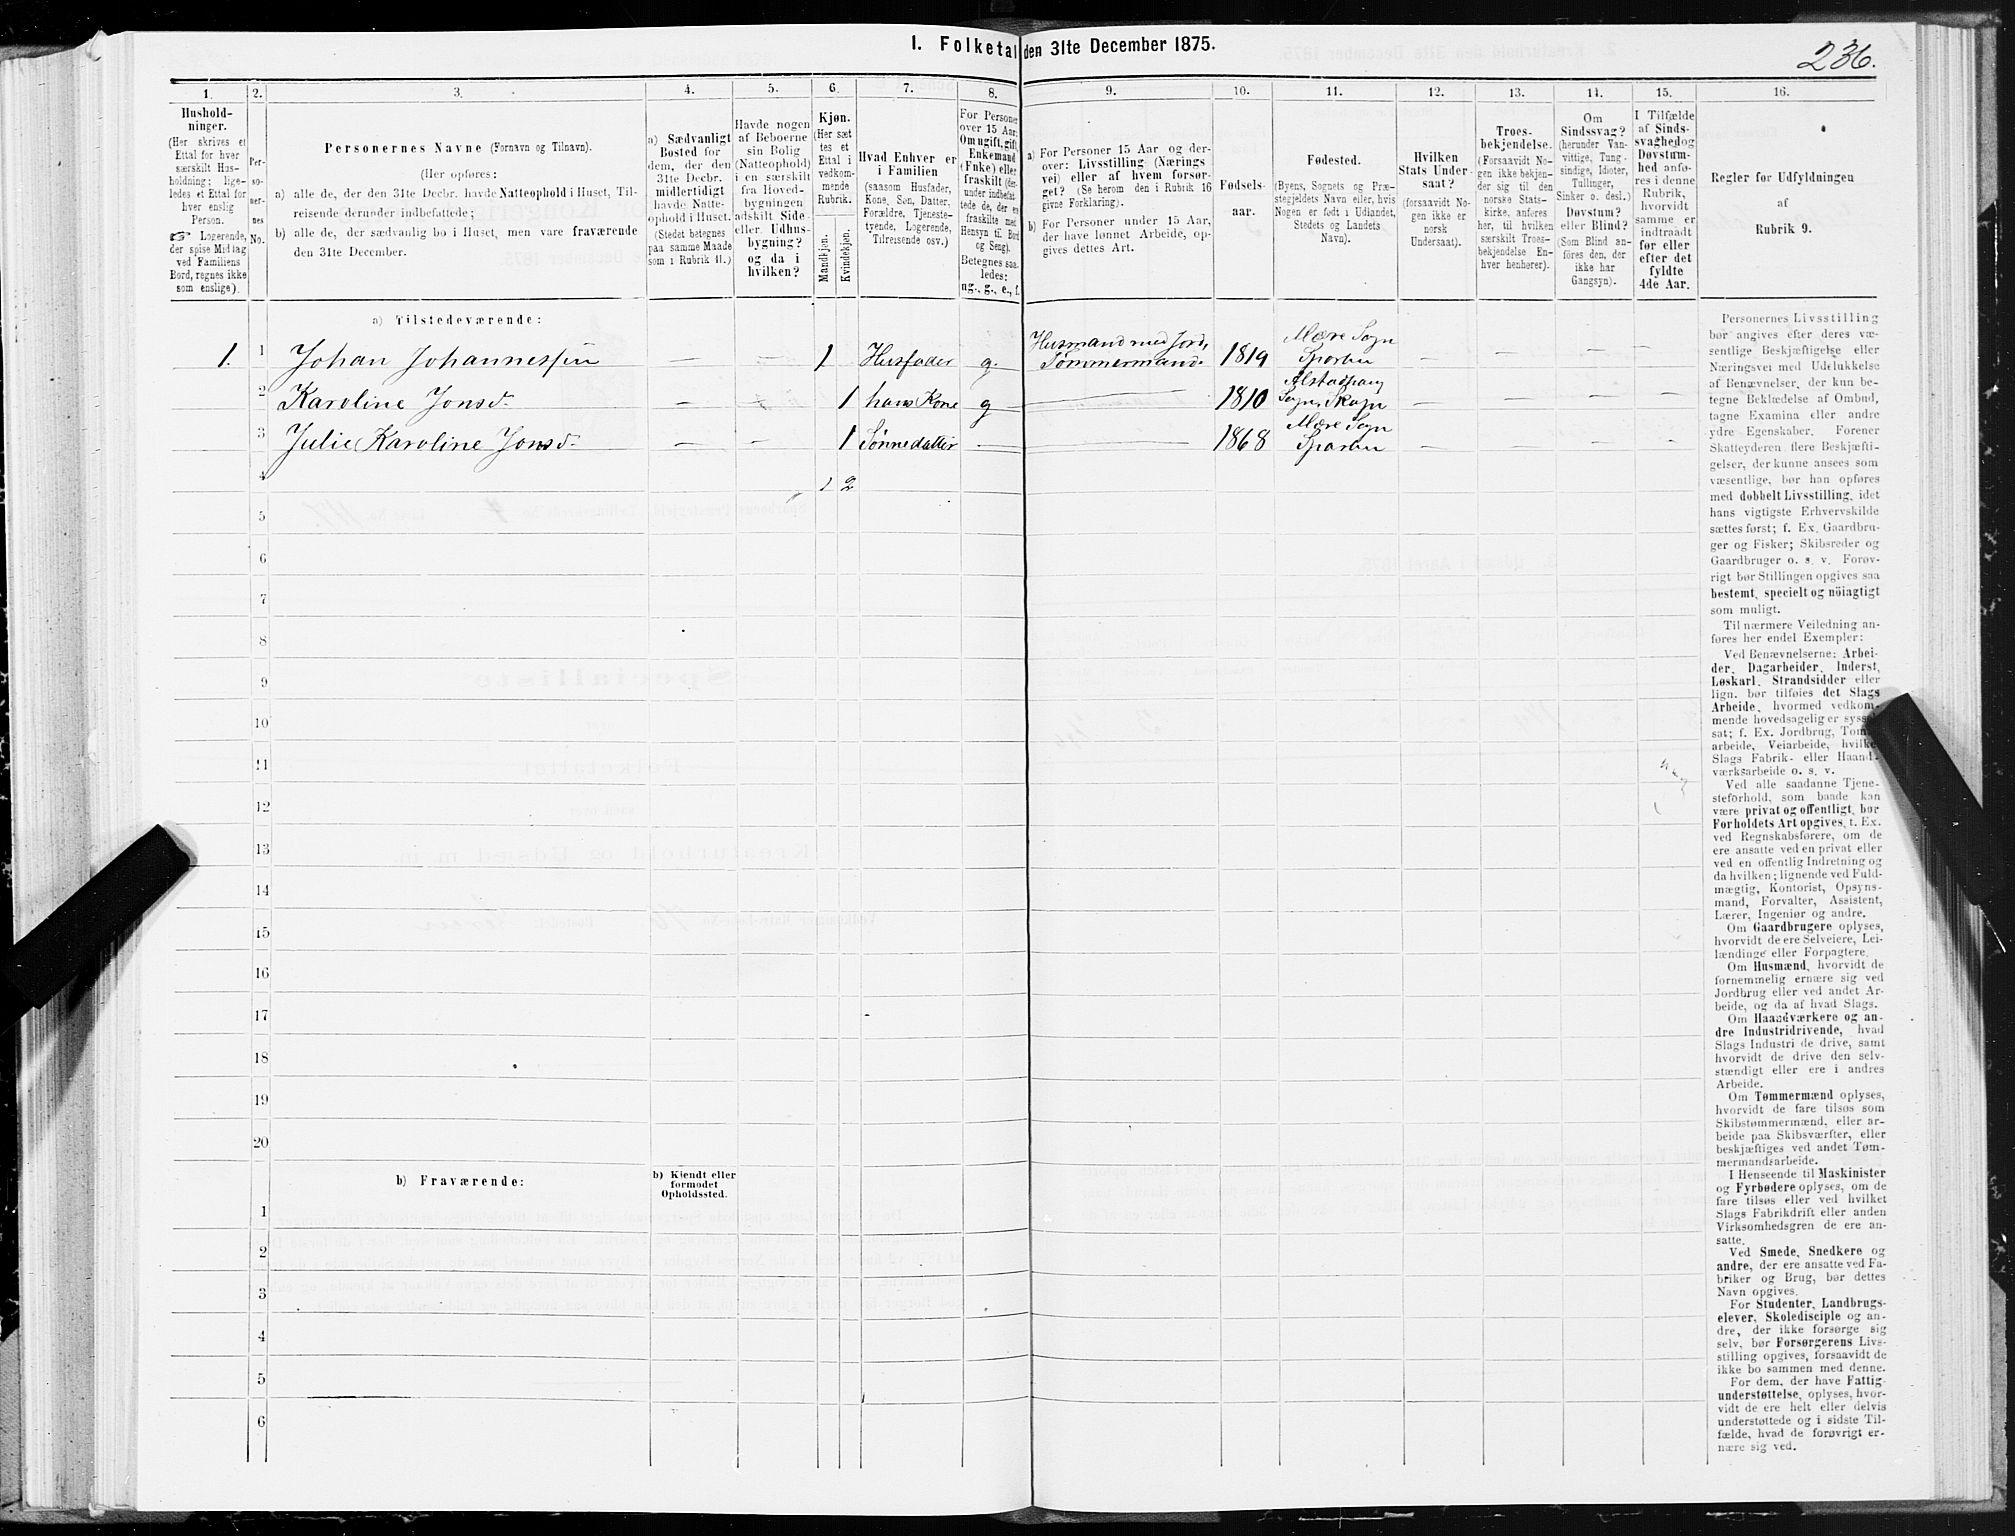 I. Folketal den 31te December 1875.
236.
1.
2.
3.
4.
5.
6.
7.
8.
9.
10.
11.
12.
13.
14.
15.
16.
Hushold-
ninger.
(Her skrives et
Ettal for hver
særskilt Hus-
holdning; lige-
ledes et Ettal for
hver enslig
Person.
☞ Logerende,
der spise Middag
ved Familiens
Bord, regnes ikke
som enslige).
Per-
so-
ner-
nes
No.
Personernes Navne (Fornavn og Tilnavn).
(Her opføres:
a) alle de, der den 31te Decbr. havde Natteophold i Huset, Til-
reisende derunder indbefattede;
b) alle de, der sædvanlig bo i Huset, men vare fraværende
den 31te December.
a) Sædvanligt
Bosted for
dem, der den
31te Decbr.
midlertidigt
havde Natte-
ophold i Huset.
(Stedet betegnes
paa samme Maade
som i Rubrik 11.)
Havde nogen
af Beboerne
sin Bolig
(Natteophold)
i en særskilt
fra Hoved-
bygningen
adskilt Side-
eller Udhus-
bygning?
og da i
hvilken?
Kjøn.
(Her sæt
tes et
Ettal i
vedkom-
mende
Rubrik.
Mandkjøn.
Kvindekjøn.
Hvad Enhver er
i Familien
(saasom Husfader,
Kone, Søn, Datter,
Forældre, Tjeneste-
tyende, Logerende,
Tilreisende osv.)
For Personer
over 15 Aar:
Om ugift, gift,
Enkemand
(Enke) eller
fraskilt (der-
under indbefat-
tede de, der ere
fraskilte med
Hensyn til Bord
og Seng).
Betegnes saa-
ledes:
ug., g., e., f.
a) For Personer 15 Aar og der-
over: Livsstilling (Nærings
vei) eller af hvem forsør-
get? (Se herom den i Rubrik 16
givne Forklaring).
b) For Personer under 15 Aar,
der have lønnet Arbeide, op-
gives dettes Art.
Fødsels-
aar.
Fødested.
(Byens, Sognets og Præ-
stegjeldets Navn eller, hvis
Nogen er født i Udlandet,
Stedets og Landets
Navn).
Hvilken
Stats Under-
saat?
(forsaavidt No-
gen ikke er
norsk
Undersaat).
Troes-
bekjendelse.
(Forsaavidt No-
gen ikke bekjen-
der sig til den
norske Stats-
kirke, anføres
her, til hvilken
særskilt Troes-
bekjendelse En-
hver henhører).
Om
Sindssvag?
(herunder Van-
vittige, Tung-
sindige, Idioter,
Tullinger,
Sinker o. desl.)
Døvstum?
eller Blind?
(Som Blind an-
føres den, der
ikke har
Gangsyn).
I Tilfælde
af Sinds-
svaghed og
Døvstum-
hed anfø-
res i denne
Rubrik,
hvorvidt
samme er
indtraadt
før eller
efter det
fyldte
4de Aar.
Regler for Udfyldningen
af
Rubrik 9.
a) Tilstedeværende:
1. 1 Johan Johannessen — — 1 Husfader g. Husmand med Jord, Tømmermand. 1819 Mære Sogn Sparbu — — — —
2 Karoline Jonsd. — — 1 hans Kone g — 1810 Alstadhaug Sogn, Skogn — — — —
3 Julie Karoline Jonsd. — — 1 Sønnedatter — — 1868 Mære Sogn Sparbu — — — —
4 1 2
5
6
7
8
9
10
11
12
13
14
15
16
17
18
19
20
b) Fraværende:
b) Kjendt eller
formodet
Opholdssted.
1
2
3
4
5
6
Personernes Livsstilling
bør angives efter deres væ-
sentlige Beskjæftigelse eller
Næringsvei med Udelukkelse
af Benævnelser, der kun be-
tegne Beklædelse af Ombud,
tagne Examina eller andre
ydre Egenskaber. Forener
Skatteyderen flere Beskjæfti-
gelser, der kunne ansees som
væsentlige, bør han opføres
med dobbelt Livsstilling, idet
hans vigtigste Erhvervskilde
sættes først; f. Ex. Gaardbru-
ger og Fisker; Skibsreder og
Gaardbruger o. s. v. Forøv-
rigt bør Stillingen opgives saa
bestemt, specielt og nöiagtigt
som muligt.
Til nærmere Veiledning an-
føres her endel Exempler:
Ved Benævnelserne: Arbei-
der, Dagarbeider, Inderst,
Løskarl, Strandsidder eller
lign. bør tilføies det Slags
Arbeide, hvormed vedkom-
mende hovedsagelig er syssel-
sat; f. Ex. Jordbrug, Tomte-
arbeide, Veiarbeide, hvilket
Slags Fabrik- eller Haand-
værksarbeide o. s. v.
Ved alle saadanne Tjene-
steforhold, som baade kan
være privat og offentligt, bør
Forholdets Art opgives, t. Ex.
ved Regnskabsførere, om de
ere ansatte ved en privat eller
ved en offentlig Indretning og
da hvilken; lignende ved Fuld-
mægtig, Kontorist, Opsyns-
mand, Forvalter, Assistent,
Lærer, Ingeniør og andre.
Om Gaardbrugere oplyses,
hvorvidt de ere Selveiere, Lei-
lændinge eller Forpagtere.
Om Husmænd, hvorvidt de
fornemmelig ernære sig ved
Jordbrug eller ved andet Ar-
beide, og da af hvad Slags.
Om Haandværkere og an-
dre Industridrivende, hvad
Slags Industri de drive, samt
hvorvidt de drive den selv-
stændigt eller ere i andres
Arbeide.
Om Tømmermænd oplyses,
hvorvidt de fare tilsøs som
Skibstømmermænd, eller ar-
beide paa Skibsværfter, eller
beskjæftiges ved andet Tøm-
mermandsarbeide.
I Henseende til Maskinister
og Fyrbødere oplyses, om de
fare tilsøs eller ved hvilket
Slags Fabrikdrift eller anden
Virksomhedsgren de ere an-
satte.
Ved Smede, Snedkere og
andre, der ere ansatte ved Fa-
briker og Brug, bør dettes
Navn opgives.
For Studenter, Landbrugs-
elever, Skoledisciple og an-
dre, der ikke forsørge sig
selv, bør Forsørgerens Livs-
stilling opgives, forsaavidt de
ikke bo sammen med denne.
For dem, der have Fattig-
understøttelse, oplyses, hvor-
vidt de ere helt eller delvis
understøttede og i sidste Til-
fælde, hvad de forøvrigt er-
nære sig ved.